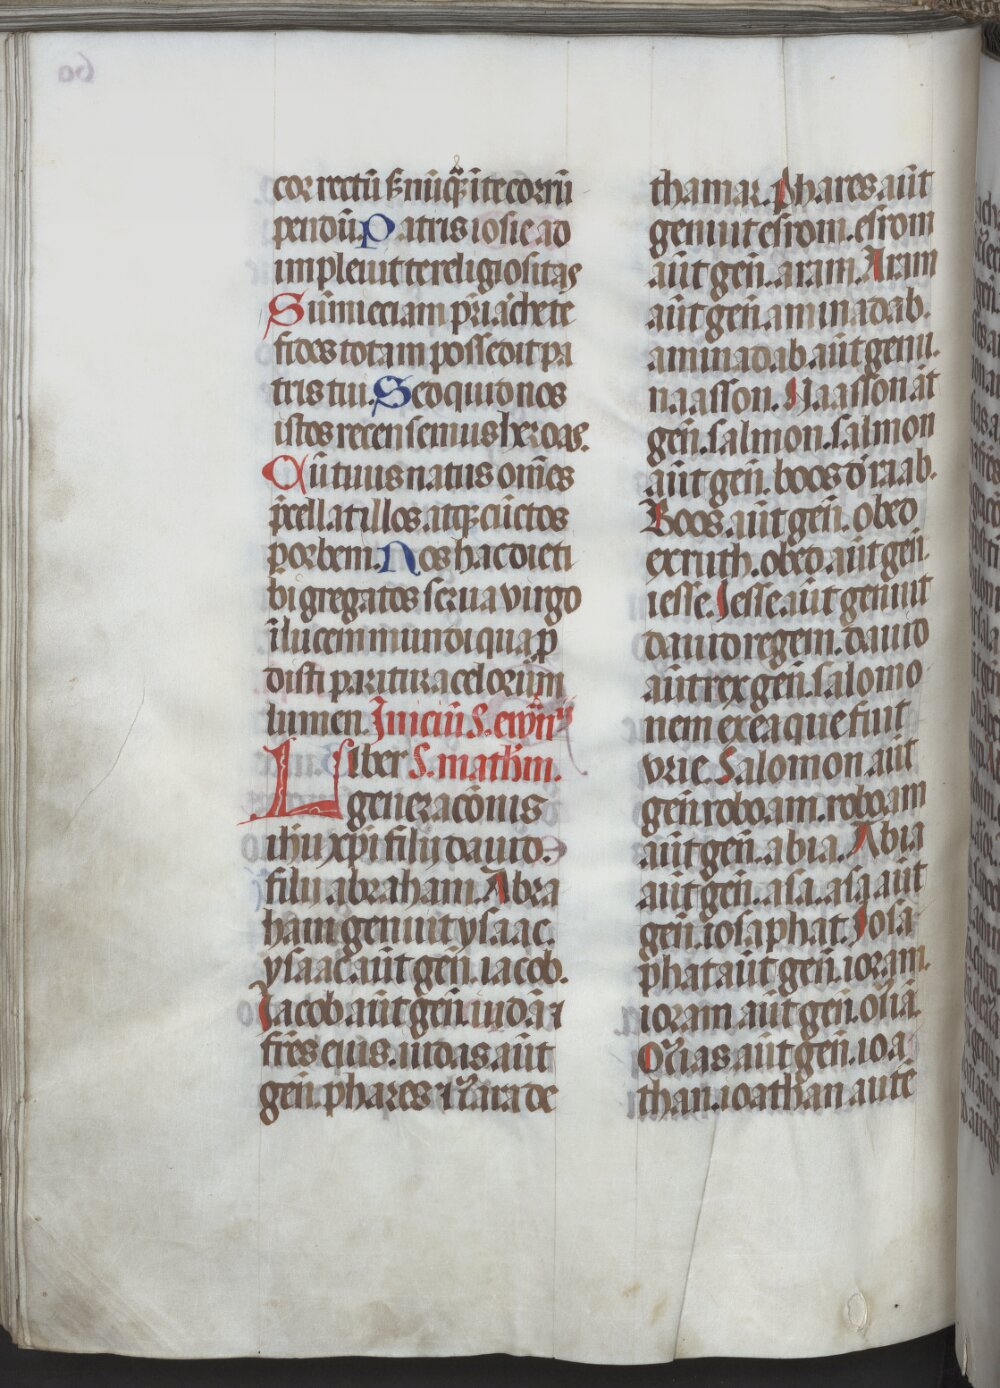 cor rectū s. nūqͣ̄ ĩte corrū
pendū. Patris iosie ad
impleuit te religiositas
Sūmi eciam p̄ri achete
fides totam possedit pa
tris tui. Sed quid nos
istos recensemus heroas.
Cū tuus natus om̄es
p̄cellat illos atqꝫ cūctos
ꝑ orbem. Nos hac die ti
bi gregatos serua virgo
ĩ lucem mundi qua ꝓ
disti paritura celorum
lumen. Iniciū S. ewᷓn
Liber S. mathm̄.
generac̄onis
ihu xp̄i filii dauid.
filii abraham. Abra
ham genuit ysaac.
ysaac aūt geñ. iacob.
Iacob aūt geñ. iudā ⁊
fr̄es eius. iudas aūt
geñ. phares ⁊ zara de
thamar. Phares aūt
genuit esrom. esrom
aūt geñ. aram. Aram
aūt geñ. aminadab.
aminadab. aūt genu.
naasson. Naasson āt
geñ. salmon. salmon
aūt geñ. boos d' raab.
Boos. aūt geñ. obed
ex ruth. obed. aūt geñ.
iesse. Iesse aūt genuit
dauid regem. dauid
aūt rex geñ. salomo
nem ex ea que fuit
vrie. Salomon aūt
geñ roboam. roboam
aūt geñ. abia. Abia
aūt geñ. asa. asa aūt
geñ. iosaphat. Iosa
phat aūt geñ. ioram.
ioram aūt geñ. oziā.
Ozias aūt geñ. ioa
than. ioathan aute